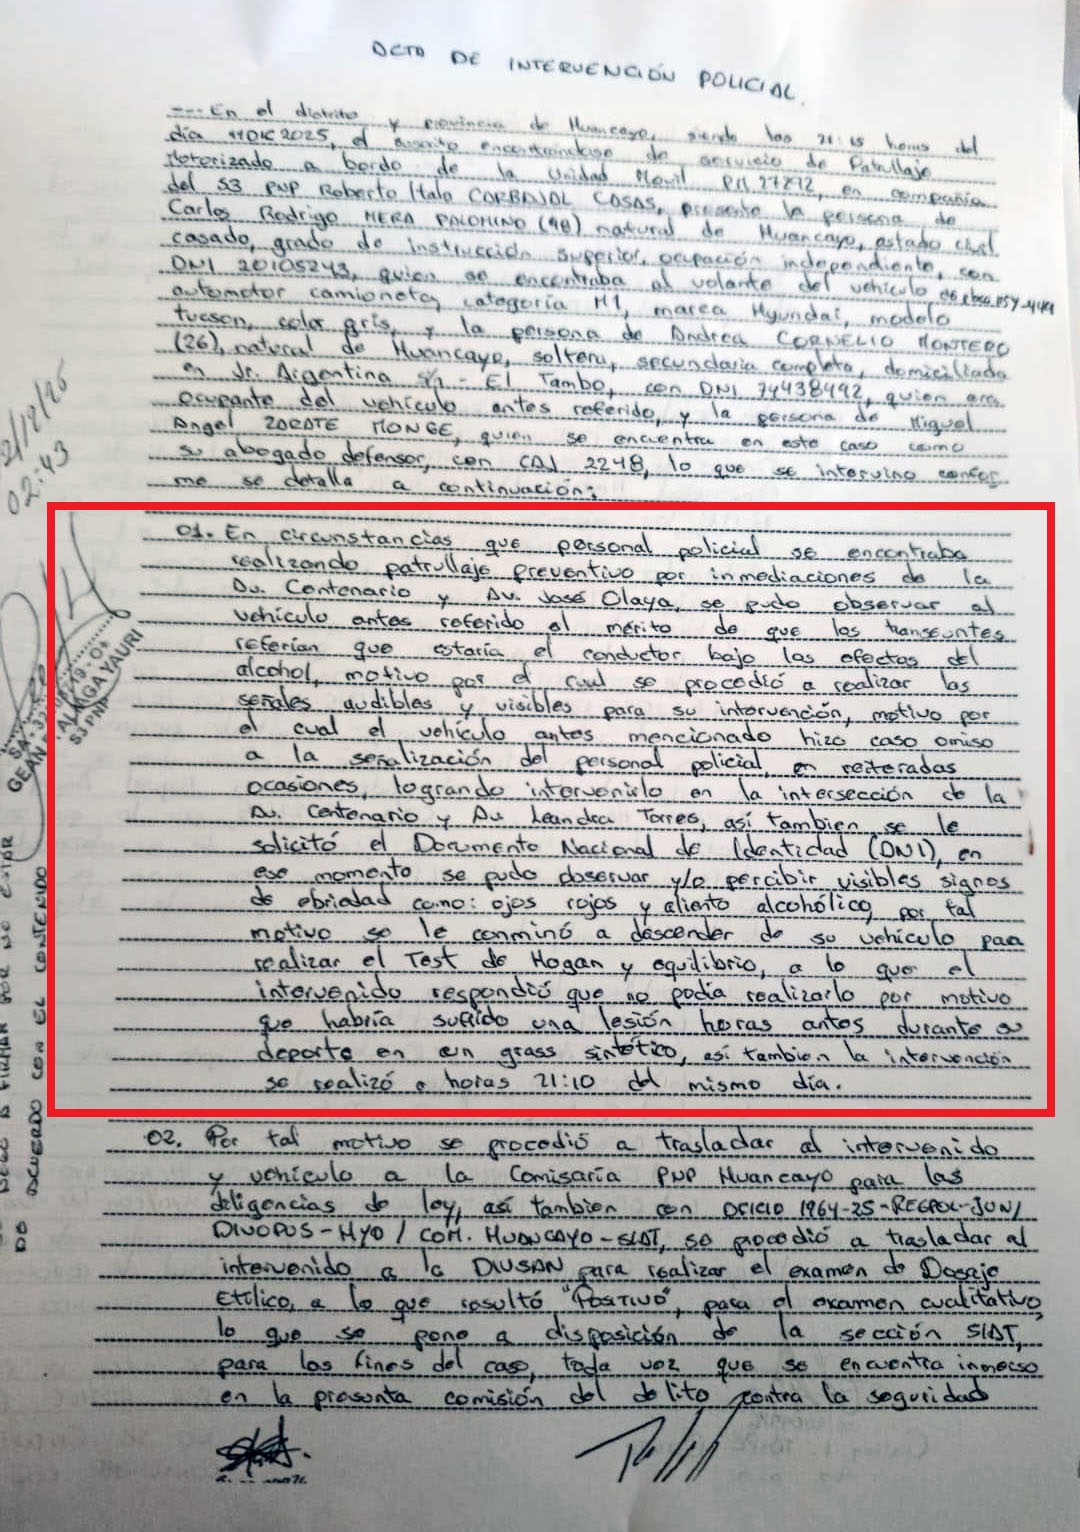 ACTO DE INTERVENCIÓN POLICIAL.
---- En el distrito y provincia de Huancayo, siendo las 21:15 horas del
día 11DIC2025, el suscrito encontrandose de servicio de Patrullaje
Motorizado a bordo de la Unidad Movil PL 27272, en compañia
del S3 PNP Roberto Italo CARBAJAL CASAS, presente la persona de
Carlos Rodrigo MERA PALOMINO (48) natural de Huancayo, estado civil
casado, grado de instrucción superior, ocupación independiente, con
DNI 20105243, quien se encontraba al volante del vehículo de placa
automotor camioneta, categoría M1, marca Hyundai, modelo
tucson, color gris, y la persona de Andrea CORNELIO MONTERO
(26), natural de Huancayo, soltera, secundaria completa, domiciliada
en Jr. Argentina s/n - El Tambo, con DNI 74438492, quien era
ocupante del vehículo antes referido, y la persona de Miguel
Angel ZARATE MONGE, quien se encuentra en este caso como
su abogado defensor, con CAJ 2248, lo que se intervino confor
me se detalla a continuación:
01. En circunstancias que personal policial se encontraba
realizando patrullaje preventivo por inmediaciones de la
Av. Centenario y Av. José Olaya, se pudo observar al
vehículo antes referido el mérito de que los transeuntes
referían que estaría el conductor bajo los efectos del
alcohol, motivo por el cual se procedió a realizar las
señales audibles y visibles para su intervención, motivo por
el cual el vehículo antes mencionado hizo caso omiso
a la señalización del personal policial, en reiteradas
ocasiones, logrando intervenirlo en la intersección de la
Av. Centenario y Av Leandra Torres, así tambien se le
solicitó el Documento Nacional de Identidad (DNI), en
ese momento se pudo observar y/o percibir visibles signos
de ebriedad como: ojos rojos y aliento alcohólico, por tal
motivo se le conminó a descender de su vehículo para
realizar el Test de Hogan y equilibrio, a lo que el
intervenido respondió que no podía realizarlo por motivo
que habría sufrido una lesión horas antes durante su
deporte en un grass sintético, así tambien la intervención
se realizó a horas 21:10 del mismo día.
02. Por tal motivo se procedió a trasladar al intervenido
y vehículo a la Comisaría PNP Huancayo para las
diligencias de ley, así tambien con OFICIO 1964-25-REGPOL-JUN/
DIVOPUS-HYO / COM. HUANCAYO-SIAT, se procedió a trasladar al
intervenido a la DIVSAN para realizar el examen de Dosaje
Etílico, a lo que resultó "POSITIVO", para el examen cualitativo,
lo que se pone a disposición de la sección SIAT,
para los fines del caso, toda vez que se encuentra inmerso
en la presente comisión del delito contra la seguridad
02:43
GEAN ALIAGA YAURI
S3 PNP
FIRMAR POR NO ESTAR
DE ACUERDO CON EL CONTENIDO